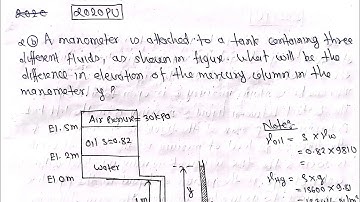 2020 PU
2 (b) A manometer is attached to a tank containing three
different fluids, as shown in figure. What will be the
difference in elevation of the mercury column in the
manometer, y?
Air Pressure = 30 kPa
El. 5m
Oil S=0.82
El. 2m
Water
El. 0m
1m
y
Note:-
γoil = S × γw
= 0.82 × 9810
=
γHg = S × g
= 13600 × 9.81